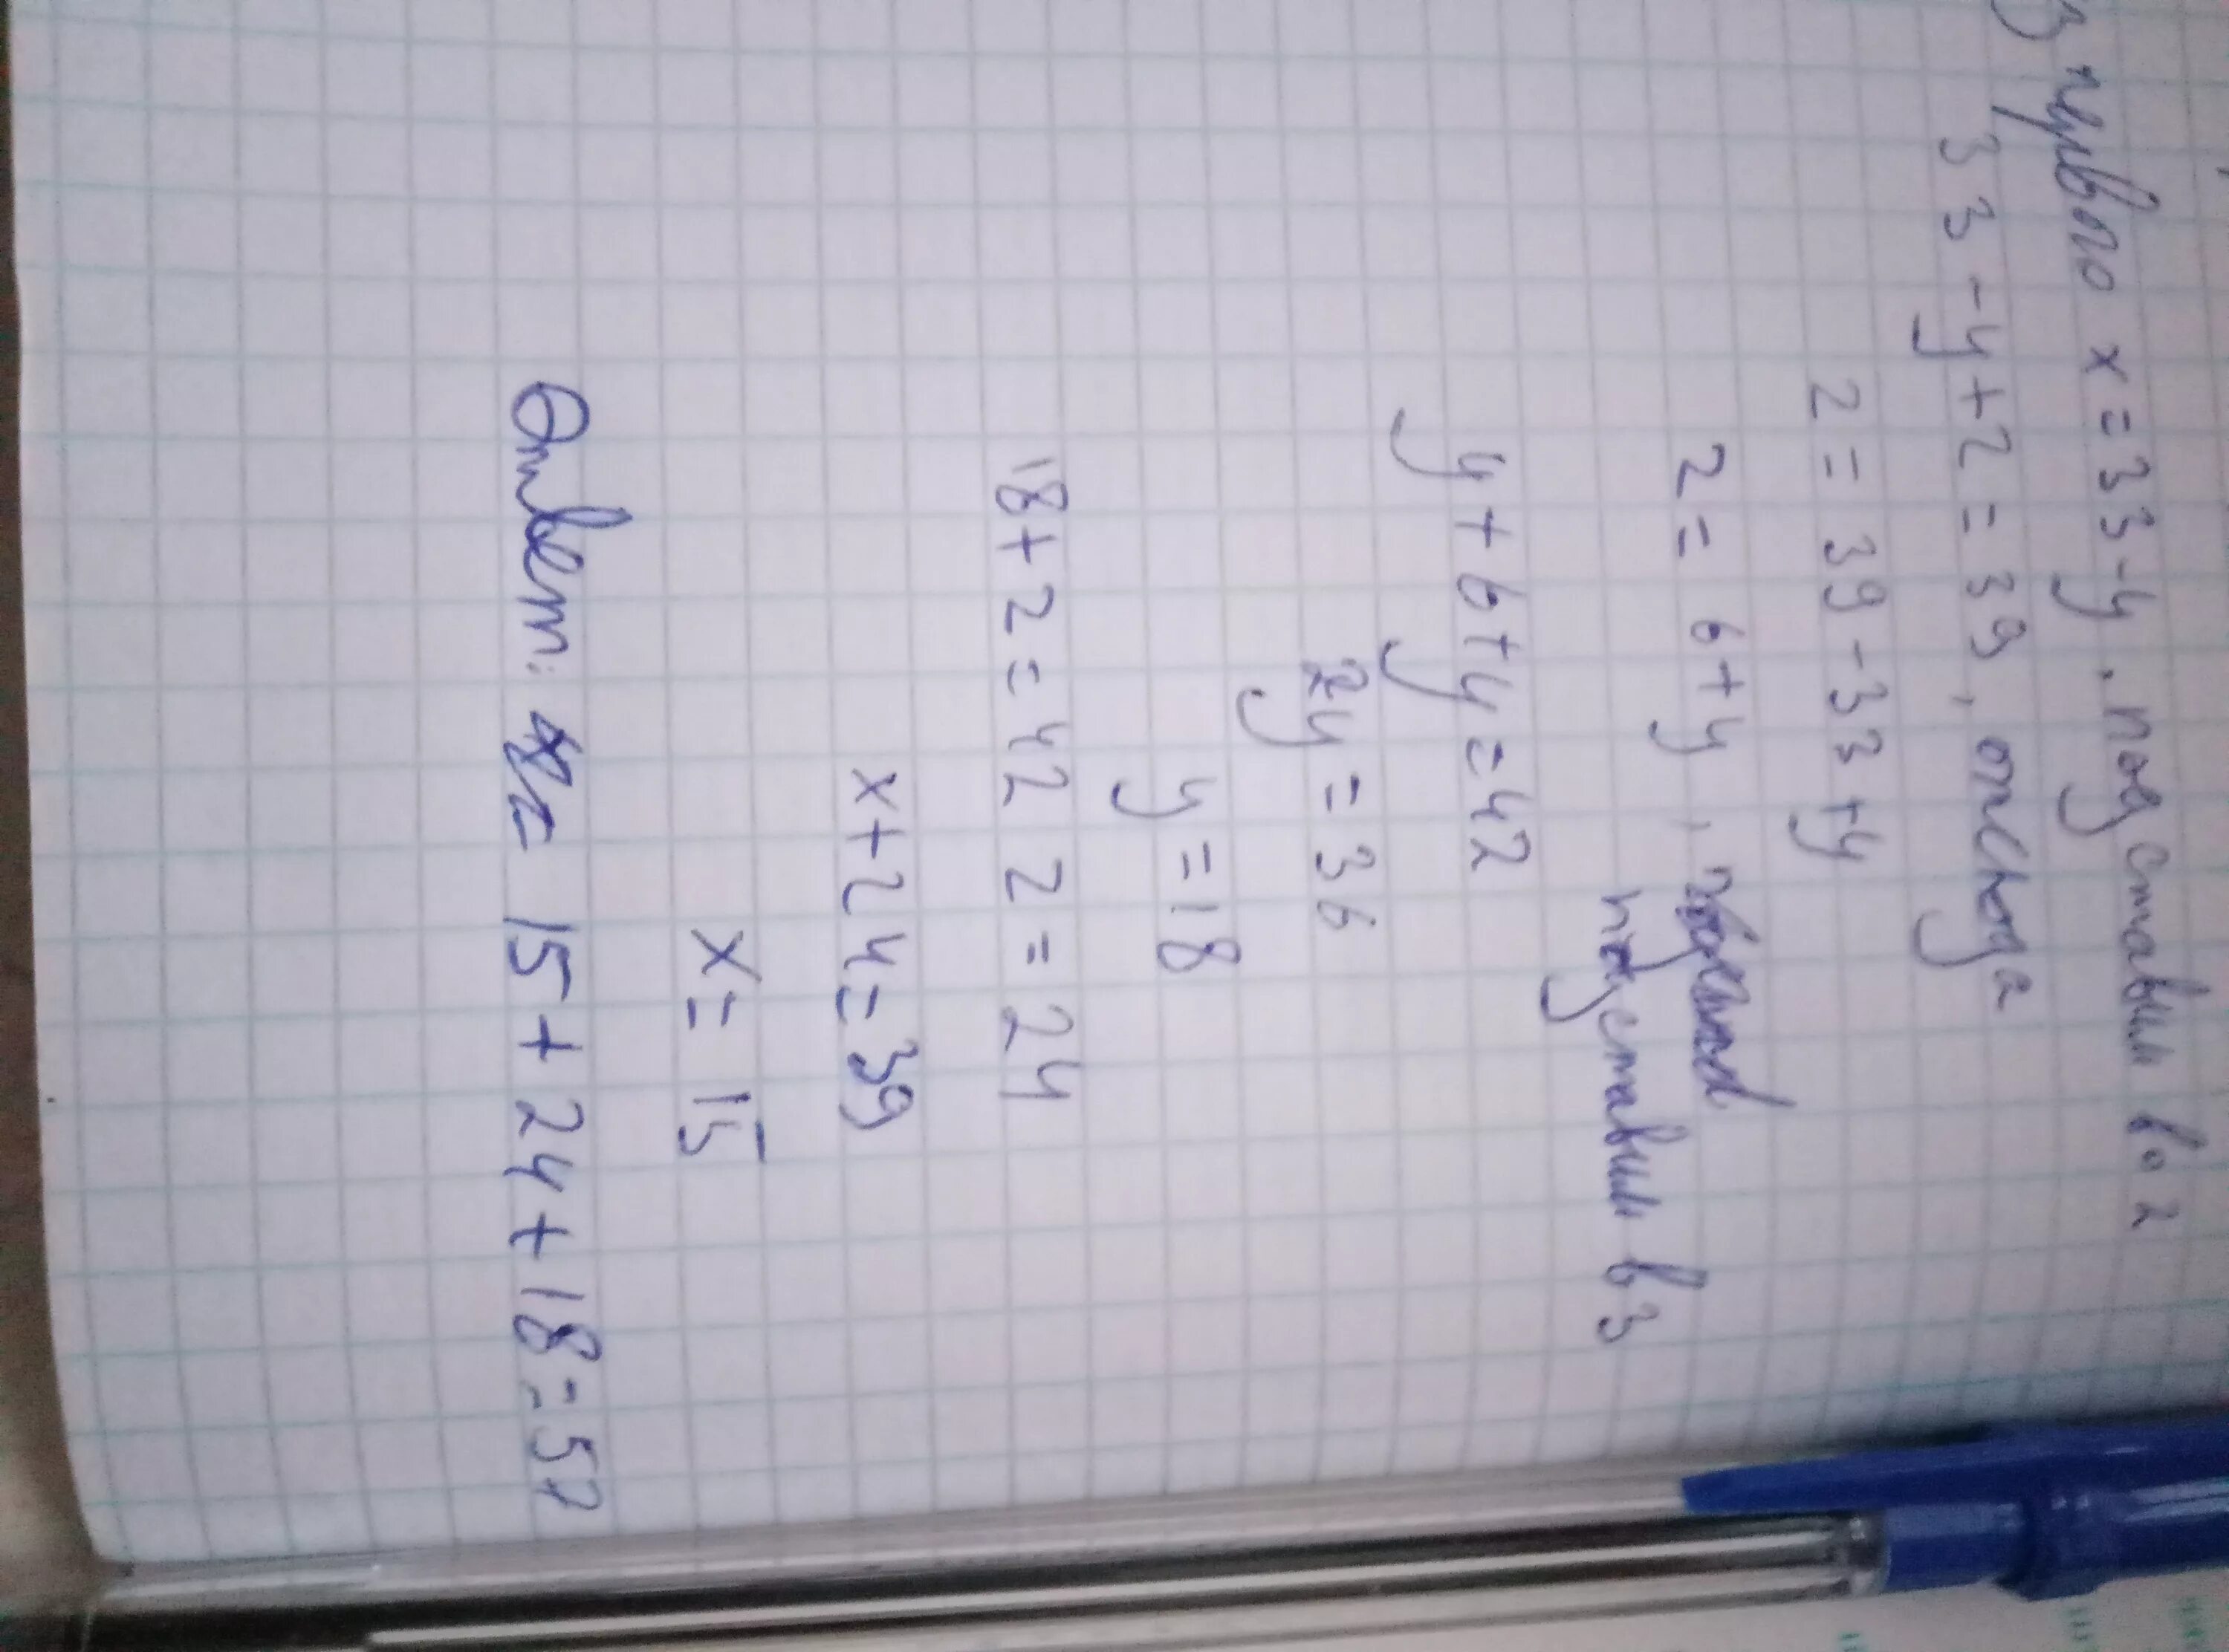 з первого x = 33 - y, подставим во 2
33 - y + z = 39, отсюда
z = 39 - 33 + y
z = 6 + y,
подставим в 3
y + 6 + y = 42
2y = 36
y = 18
18 + z = 42 z = 24
x + 24 = 39
x = 15
Ответ: 15 + 24 + 18 = 57